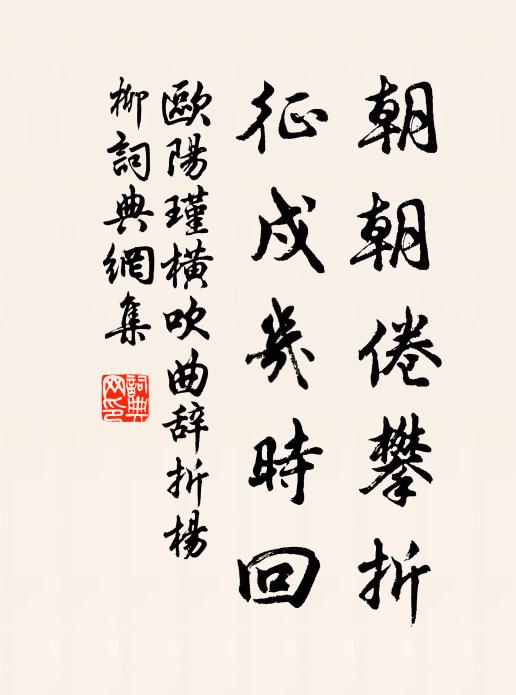 朝朝倦攀折
征戍幾時回
歐陽瑾橫吹曲辞折楊
柳詞典網集
詞典
网印